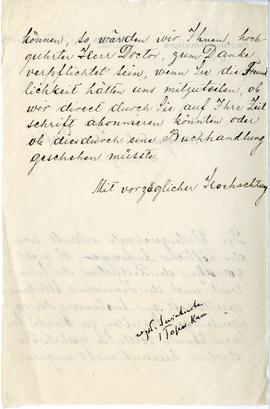 können, so wärden wir Ihnen, hoch-
gehrter Herr Doctor, zum Danke
verpflichtet sein, wenn Sie die Freund-
lichkeit hätten uns mitzuteilen, ob
wir direct durch Sie auf Ihre Zeit
schrift abonnieren könnten oder
ob dies durch eine Buchhandlung
geschehen müsste.
Mit vorzüglicher Hochachtung